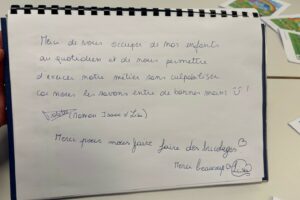 Merci de vous occuper de nos enfants
au quotidien et de nous permettre
d'exercer notre métier sans culpabiliser
car nous les savons entre de bonnes mains !
(Maman Isaac &
Merci pour nous faire faire des bricolages
Merci beaucoup